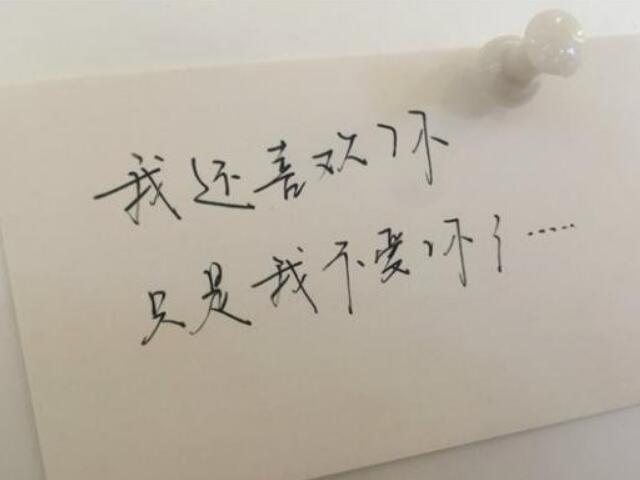 我还喜欢你
只是我不爱你了……